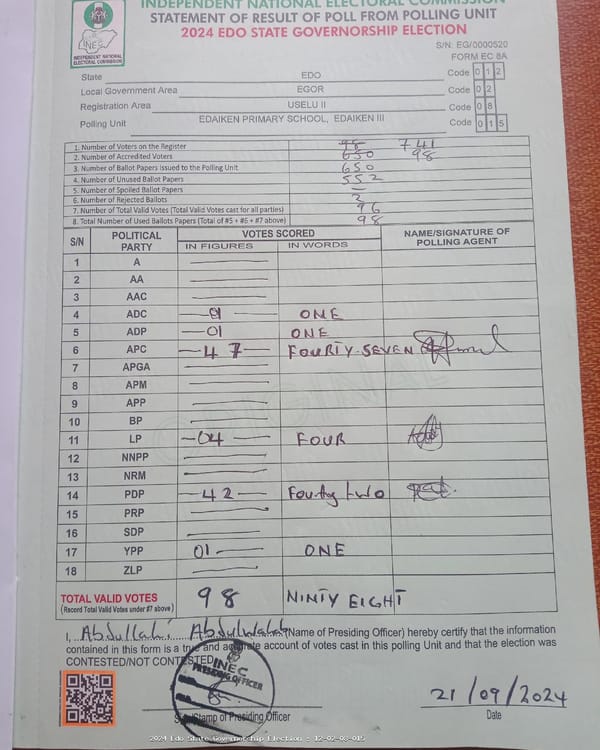 INDEPENDENT NATIONAL ELECTORAL COMMISSION
STATEMENT OF RESULT OF POLL FROM POLLING UNIT
2024 EDO STATE GOVERNORSHIP ELECTION
INEC
INDEPENDENT NATIONAL ELECTORAL COMMISSION
S/N: EG/0000520
FORM EC 8A
State EDO Code 0 1 2
Local Government Area EGOR Code 0 2
Registration Area USELU II Code 0 8
Polling Unit EDAIKEN PRIMARY SCHOOL, EDAIKEN III Code 0 1 5
1. Number of Voters on the Register 98 741
2. Number of Accredited Voters 650 98
3. Number of Ballot Papers Issued to the Polling Unit 650
4. Number of Unused Ballot Papers 552
5. Number of Spoiled Ballot Papers –
6. Number of Rejected Ballots 2
7. Number of Total Valid Votes (Total Valid Votes cast for all parties) 96
8. Total Number of Used Ballots Papers (Total of #5 + #6 + #7 above) 98
S/N POLITICAL PARTY VOTES SCORED NAME/SIGNATURE OF POLLING AGENT
IN FIGURES IN WORDS
1 A
2 AA
3 AAC
4 ADC 01 ONE
5 ADP 01 ONE
6 APC 47 FOURTY SEVEN
7 APGA
8 APM
9 APP
10 BP
11 LP 04 FOUR
12 NNPP
13 NRM
14 PDP 42 Fourty two
15 PRP
16 SDP
17 YPP 01 ONE
18 ZLP
TOTAL VALID VOTES 98 NINTY EIGHT
(Record Total Valid Votes under #7 above)
I, Abdullahi Abdulwahab (Name of Presiding Officer) hereby certify that the information
contained in this form is a true and accurate account of votes cast in this polling Unit and that the election was
CONTESTED/NOT CONTESTED
INEC
PRESIDING OFFICER
Stamp of Presiding Officer
21/09/2024
Date
2024 Edo State Governorship Election : 12-02-08-015